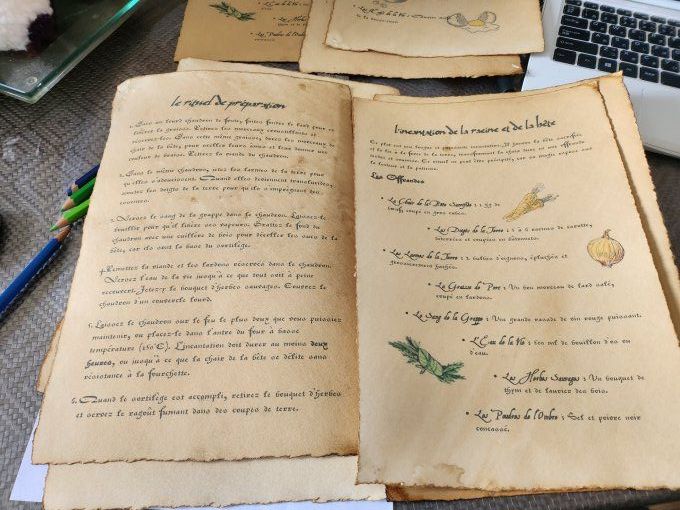 le rituel de préparation
1. Dans un lourd chaudron de fonte, faites fondre le lard pour en
libérer la graisse. Retirez les morceaux croustillants et
réservez-les. Dans cette même graisse, jetez les morceaux de
chair de la bête, pour sceller leurs sucs et leur donner une
couleur de bronze. Retirez la viande du chaudron.
2. Dans le même chaudron, jetez les larmes de la terre pour
qu'elles s'adoucissent. Quand elles deviennent translucides,
ajoutez les doigts de la terre pour qu'ils s'imprègnent des
arômes.
3. Versez le sang de la grappe dans le chaudron. Laissez-le
bouillir pour qu'il libère ses vapeurs. Grattez le fond du
chaudron avec une cuillère de bois pour décoller les sucs de la
bête, car ils sont la base du sortilège.
4. Remettez la viande et les lardons réservés dans le chaudron.
Versez l'eau de la vie jusqu'à ce que tout soit à peine
recouvert. Jetez-y le bouquet d'herbes sauvages. Couvrez le
chaudron d'un couvercle lourd.
5. Laissez le chaudron sur le feu le plus doux que vous puissiez
maintenir, ou placez-le dans l'antre du four à basse
température (150°C). L'incantation doit durer au moins deux
heures, ou jusqu'à ce que la chair de la bête se délite sans
résistance à la fourchette.
6. Quand le sortilège est accompli, retirez le bouquet d'herbes
et servez le ragoût fumant dans des coupes de terre.
l'incantation de la racine et de la bête
Ce plat est une longue et puissante incantation. Il
et la
Les Offrandes
• La Chair de la Bête Sacrifiée : 1,5 kg de
bœuf coupé en gros cubes.
• Les Doigts de la Terre : 5 à 6 carottes,
émincées et coupées en bâtonnets.
• Les Larmes de la Terre : 2 bulbes d'oignons, épluchés et
grossièrement hachés.
• La Graisse de Porc : Un bon morceau de lard salé,
coupé en lardons.
• Le Sang de la Grappe : Une grande rasade de vin rouge puissant.
• L'Eau de la Vie : 500 ml de bouillon d'os ou
d'eau.
• Les Herbes Sauvages : Un bouquet de
thym et de laurier des bois.
• Les Poudres de l'Ombre : Sel et poivre noir
concassé.